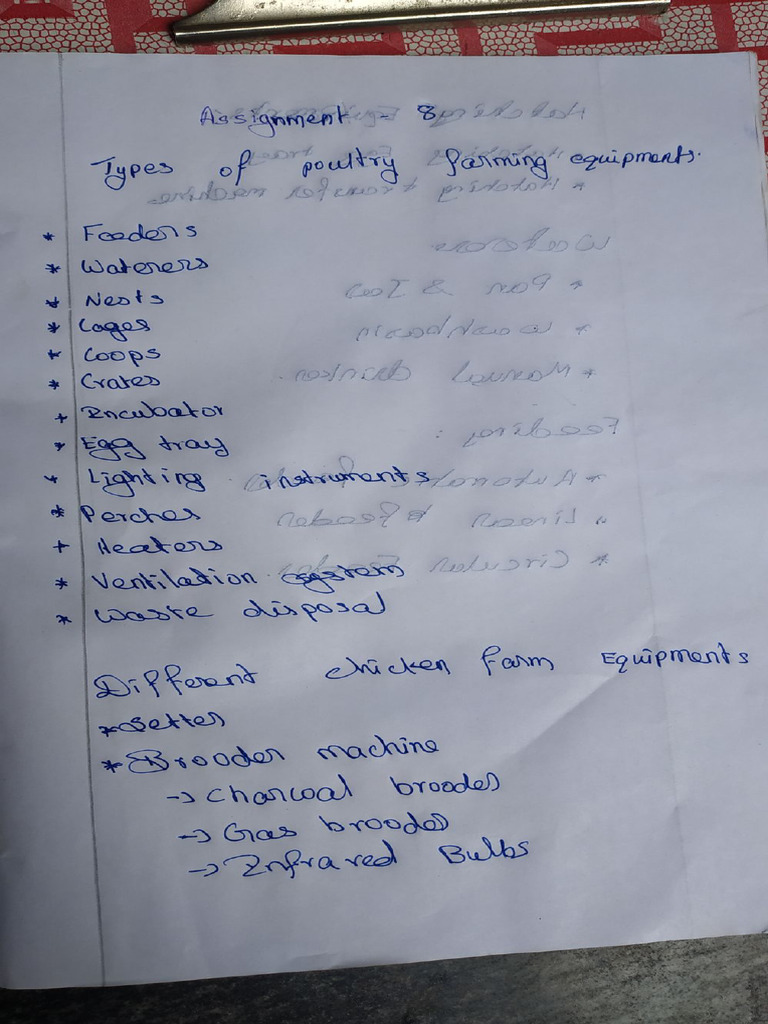 Assignment - 8
Types of poultry farming equipments.
* Feeders
* Waterers
* Nests
* Cages
* Coops
* Crates
+ Incubator
* Egg tray
* Lighting instruments
* Perches
+ Heaters
* Ventilation system
* Waste disposal
Different chicken farm Equipments
* Setter
* Brooder machine
-> Charcoal brooder
-> Gas brooder
-> Infrared Bulbs